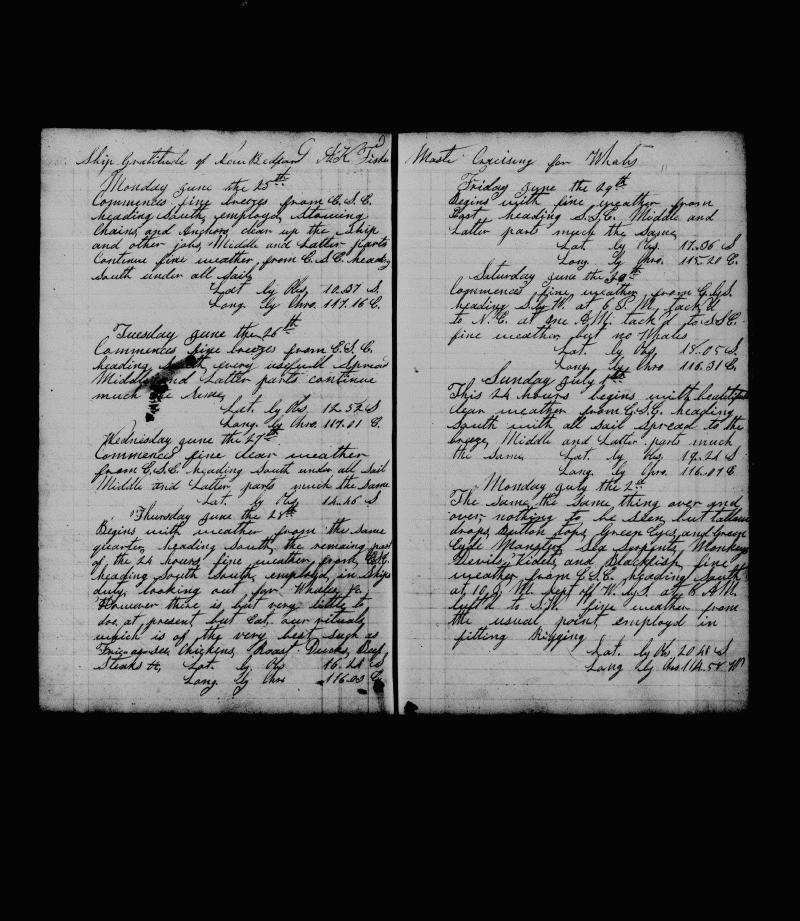 Ship Gratitude of New Bedford A.K. Fisher
Monday June the 25th
Commences fine breezes from E.S.E.
heading South, employd, Stowing
Chains, and Anchors, clear up the Ship
and other jobs, Middle and Latter parts
Continue fine weather, from E.S.E. heading
South under all sail
Lat. by Obs, 10.37 S.
Long. by Chro. 117.16 E.
Tuesday June the 26th
Commences fine breezes from E.S.E.
heading South every usefull Spread
Middle and Latter parts continue
much the same,
Lat. by Obs. 12.52 S
Long. by Chro. 117.01 E.
Wednesday June the 27th
Commences fine clear weather
from E.S.E. heading South under all sail
Middle and Latter parts much the same
Lat. by Obs 14.46 S
Thursday June the 28th
Begins with weather from the same
quarter, heading South, the remaing part
of the 24 hours fine weather, from
heading South South, employd, in Ships
duty, looking out for Whales, &c.
However there is, but very little to
do, at present, but Eat, our vituals
which is of the very best, such as
Chickens, Roast Ducks, Beef
Steaks &c, Lat. by Obs 16.24 S
Long. by Chro 116.03 E
Master Cruising for Whales
Friday June the 29th
Begins with fine weather from
East, heading S.S.E. Middle and
Latter parts much the same,
Lat. by Obs. 17.36 S
Long. by Chro. 115.20 E.
Saturday June the 30th
Commences, fine, weather, from E.by S.
heading S.by W. at 6 P.M, tack'd
to N.E. at one A.M. tack'd to S.S.E.
fine weather, but no Whales
Lat. by Obs 18.05 S.
Long. by Chro 116.31 E.
Sunday July 1st
This 24 hours begins with beautiful
clear weather from E.S.E. heading
South with all sail Spread to the
breeze, Middle and Latter parts much
the same, Lat. by Obs. 19.21 S
Long. by Chro. 116.07 E
Monday July the 2nd
The same, the same thing over and
over, nothing to be seen, but tallow
drops, Button tops, Green Eyes, and Green
Sea Serpents, Monkey
Devils, and Blackfish, fine
weather from E.S.E. heading South
at 10 P.M. kept off W.by S. at 6 A.M.
luff'd to S.W. fine weather from
the usual point, employd in
fitting Rigging
Lat. by Obs 20.41 S
Long by Chro 114.58